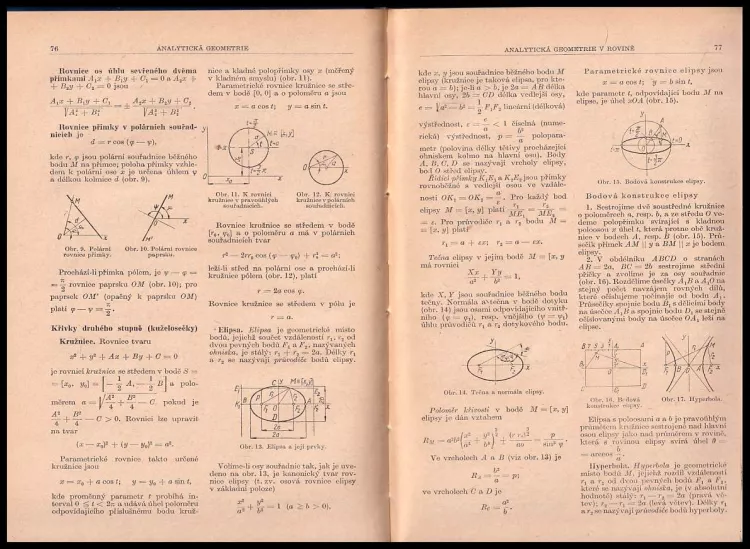 76
ANALYTICKÁ GEOMETRIE
Rovnice os úhlu sevřeného dvěma
přímkami A₁x + B₁y + C₁ = 0 a A₂x +
+ B₂y + C₂ = 0 jsou
A₁x + B₁y + C₁ / √A₁² + B₁² = ± A₂x + B₂y + C₂ / √A₂² + B₂²
Rovnice přímky v polárních souřad-
nicích je
d = r cos (φ — ψ),
kde r, φ jsou polární souřadnice běžného
bodu M na přímce; poloha přímky vzhle-
dem k polární ose x je určena úhlem ψ
a délkou kolmice d (obr. 9).
Obr. 9. Polární
rovnice přímky.
Obr. 10. Polární rovnice
paprsku.
Prochází-li přímka pólem, je φ — ψ =
= π/2 rovnice paprsku OM (obr. 10); pro
paprsek OM' (opačný k paprsku OM)
platí ψ — φ = π/2.
Křivky druhého stupně (kuželosečky)
Kružnice. Rovnice tvaru
x² + y² + Ax + By + C = 0
je rovnicí kružnice se středem v bodě S =
= [x₀, y₀] = [— 1/2 A, — 1/2 B] a polo-
měrem a = √A²/4 + B²/4 — C, pokud je
A²/4 + B²/4 — C > 0. Rovnici lze upravit
na tvar
(x — x₀)² + (y — y₀)² = a².
Parametrické rovnice takto určené
kružnice jsou
x = x₀ + a cos t; y = y₀ + a sin t,
kde proměnný parametr t probíhá in-
terval 0 ≤ t < 2π a udává úhel poloměru
odpovídajícího příslušnému bodu kruž-
nice a kladné polopřímky osy x (měřený
v kladném smyslu) (obr. 11).
Parametrické rovnice kružnice se stře-
dem v bodě [0, 0] a o poloměru a jsou
x = a cos t; y = a sin t.
Obr. 11. K rovnici
kružnice v pravoúhlých
souřadnicích.
Obr. 12. K rovnici
kružnice v polárních
souřadnicích.
Rovnice kružnice se středem v bodě
[r₀, φ₀] a o poloměru a má v polárních
souřadnicích tvar
r² — 2rr₀ cos (φ — φ₀) + r₀² = a²;
leží-li střed na polární ose a prochází-li
kružnice pólem (obr. 12), platí
r = 2a cos φ.
Rovnice kružnice se středem v pólu je
r = a.
Elipsa. Elipsa je geometrické místo
bodů, jejichž součet vzdáleností r₁, r₂ od
dvou pevných bodů F₁ a F₂, nazývaných
ohniska, je stálý: r₁ + r₂ = 2a. Délky r₁
a r₂ se nazývají průvodiče bodů elipsy.
Obr. 13. Elipsa a její prvky.
Volíme-li osy souřadnic tak, jak je uve-
deno na obr. 13, je kanonický tvar rov-
nice elipsy (t. zv. osová rovnice elipsy
v základní poloze)
x²/a² + y²/b² = 1 (a ≥ b > 0),
ANALYTICKÁ GEOMETRIE V ROVINĚ
77
kde x, y jsou souřadnice běžného bodu M
elipsy (kružnice je taková elipsa, pro kte-
rou a = b); je-li a > b, je 2a = AB délka
hlavní osy, 2b = CD délka vedlejší osy,
e = √a² — b² = 1/2 F₁F₂ lineární (délková)
výstřednost, ε = e/a < 1 číselná (nume-
rická) výstřednost, p = b²/a polopara-
metr (polovina délky tětivy procházející
ohniskem kolmo na hlavní osu). Body
A, B, C, D se nazývají vrcholy elipsy,
bod O střed elipsy.
Řídicí přímky K₁E₁ a K₂E₂ jsou přímky
rovnoběžné s vedlejší osou ve vzdále-
nosti OK₁ = OK₂ = a/ε. Pro každý bod
elipsy M = [x, y] platí r₁/ME₁ = r₂/ME₂ =
= ε. Pro průvodiče r₁ a r₂ bodu M =
= [x, y] platí
r₁ = a + εx; r₂ = a — εx.
Tečna elipsy v jejím bodě M = [x, y]
má rovnici
Xx/a² + Yy/b² = 1,
kde X, Y jsou souřadnice běžného bodu
tečny. Normála a tečna v bodě dotyku
(obr. 14) jsou osami odpovídajícího vnitř-
ního (φ = φ₁), resp. vnějšího (ψ = ψ₁)
úhlu průvodičů r₁ a r₂ dotykového bodu.
Obr. 14. Tečna a normála elipsy.
Poloměr křivosti v bodě M = [x, y]
elipsy je dán vztahem
Ve vrcholech A a B (viz obr. 13) je
R_A = b²/a = p;
ve vrcholech C a D je
R_C = a²/b.
Parametrické rovnice elipsy jsou
x = a cos t; y = b sin t,
kde parametr t, odpovídající bodu M na
elipse, je úhel xOA (obr. 15).
Obr. 15. Bodová konstrukce elipsy.
Bodová konstrukce elipsy
1. Sestrojíme dvě soustředné kružnice
o poloměrech a, resp. b, a ze středu O ve-
deme polopřímku svírající s kladnou
poloosou x úhel t, která protne obě kruž-
nice v bodech A, resp. B (obr. 15). Prů-
sečík přímek AM || y a BM || x je bodem
elipsy.
2. V obdélníku ABCD o stranách
AB = 2a, BC = 2b sestrojíme střední
příčky a zvolíme je za osy souřadnic
(obr. 16). Rozdělíme úsečky A₁B a A₁O na
stejný počet navzájem rovných dílů,
které očíslujeme počínajíc od bodu A₁.
Průsečíky spojnic bodu B₁ s dělicími body
na úsečce A₁B a spojnic bodu D₁ se stejně
očíslovanými body na úsečce OA₁ leží na
elipse.
Obr. 16. Bodová
konstrukce elipsy.
Obr. 17. Hyperbola.
Elipsa s poloosami a a b je pravoúhlým
průmětem kružnice sestrojené nad hlavní
osou elipsy jako nad průměrem v rovině,
která s rovinou elipsy svírá úhel θ =
= arccos b/a.
Hyperbola. Hyperbola je geometrické
místo bodů M, jejichž rozdíl vzdáleností
r₁ a r₂ od dvou pevných bodů F₁ a F₂,
které se nazývají ohniska, je (v absolutní
hodnotě) stálý: r₁ — r₂ = 2a (pravá vě-
tev); r₂ — r₁ = 2a (levá větev). Délky r₁
a r₂ se nazývají průvodiče bodů hyperboly.